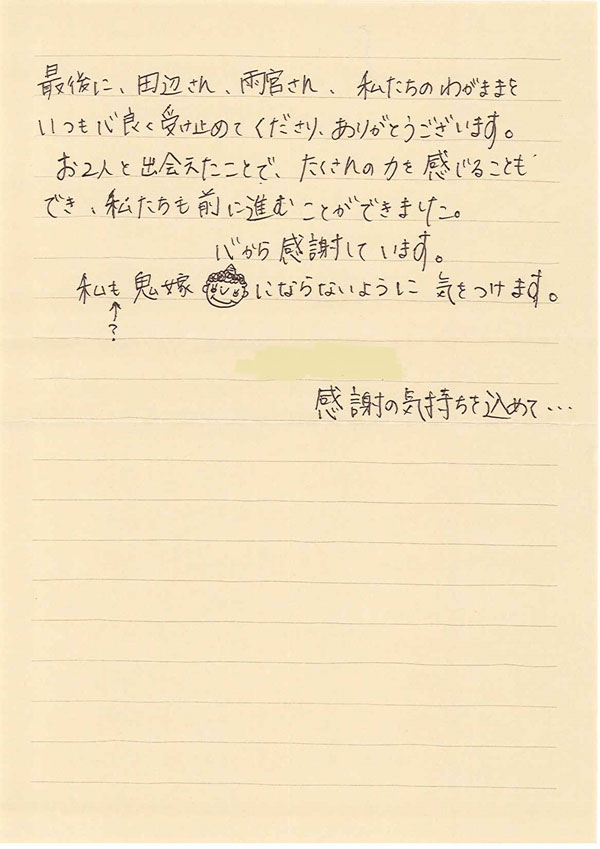 最後に、田辺さん、雨宮さん、私たちのわがままを
いつも心良く受け止めてくださり、ありがとうございます。
お2人と出会えたことで、たくさんの力を感じることも
でき、私たちも前に進むことができました。
心から感謝しています。
私も鬼嫁にならないように気をつけます。
↑
?
感謝の気持ちを込めて…